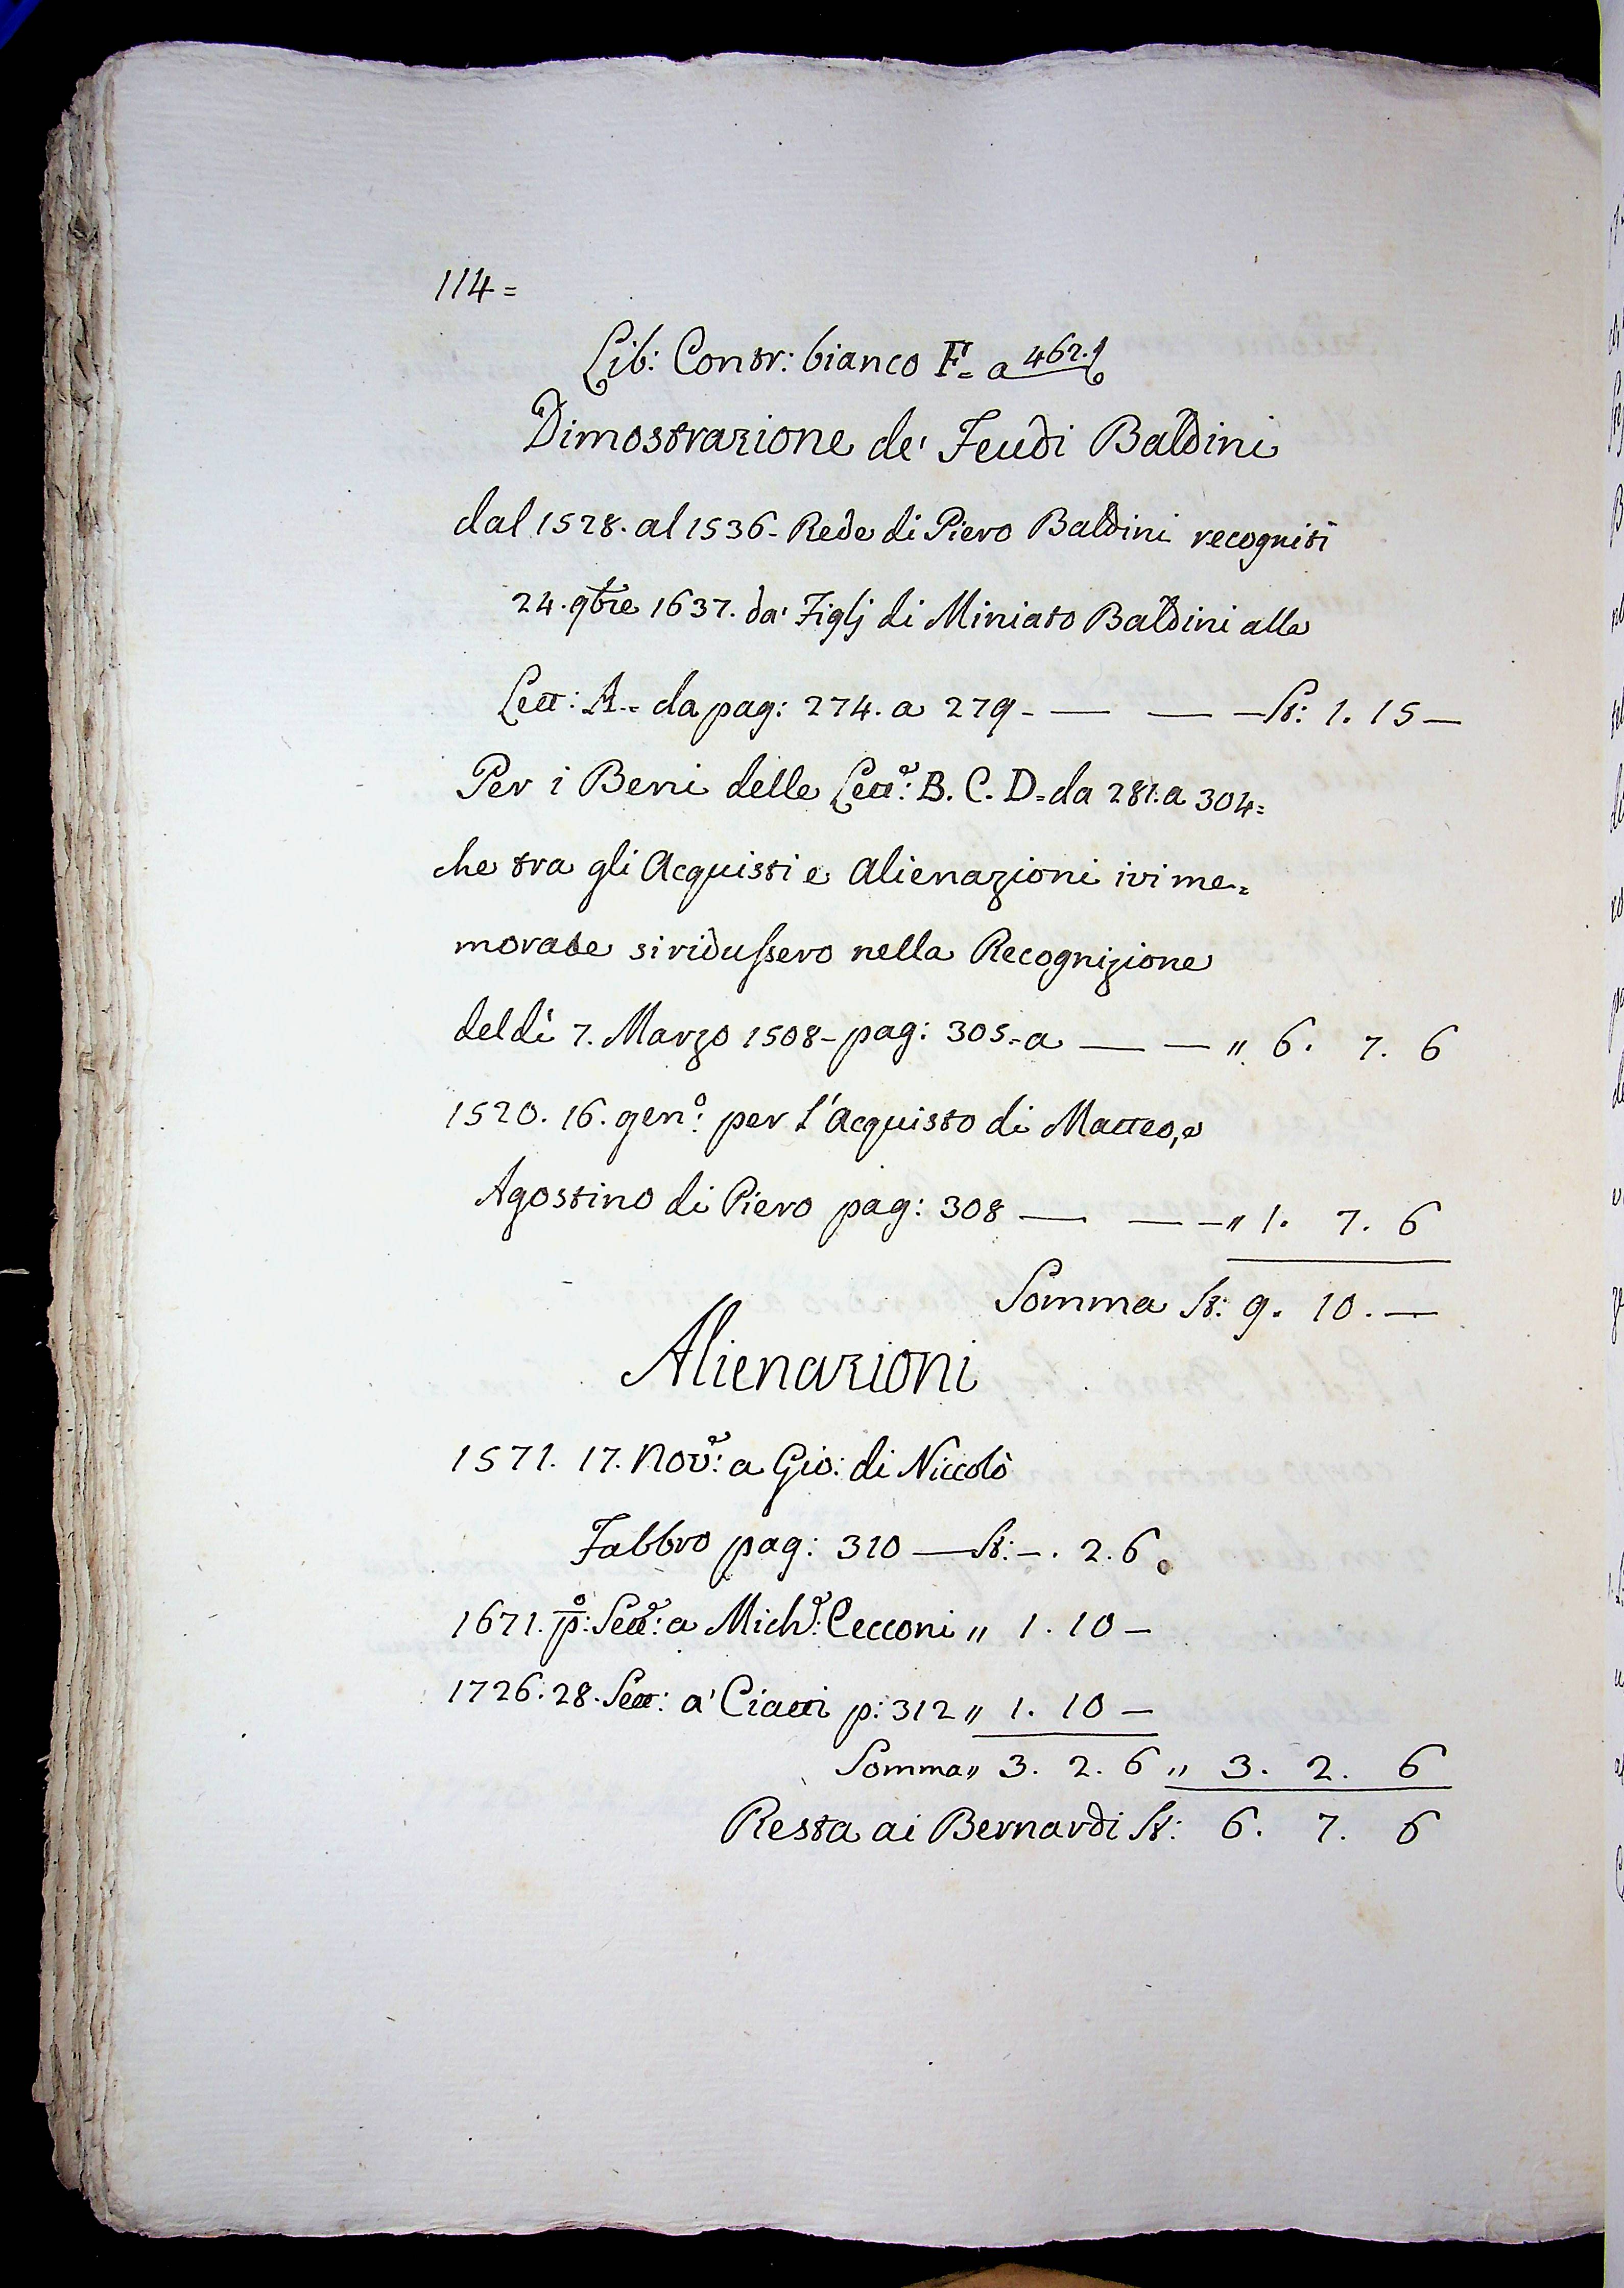 114=
Lib: Contr: bianco F= a 462.
Dimostrazione de' Feudi Baldini
dal 1528. al 1536- Rede di Piero Baldini recogniti
24. 9bre 1637. da' Figlj di Miniato Baldini alla
Lett: A.= da pag: 274. a 279- — — — St: 1. 15 —
Per i Beni delle Lette: B. C. D= da 281. a 304=
che tra gli Acquisti e Alienazioni ivi me=
morate si ridussero nella Recognizione
del dì 7. Marzo 1508- pag: 305.= a — — " 6. 7. 6
1520. 16. geno: per l'Acquisto di Matteo, e
Agostino di Piero pag: 308 — — — " 1. 7. 6
Somma St: 9. 10. —
Alienazioni
1571. 17. Nove: a Gio: di Niccolò
Fabbro pag: 310 — St: -. 2. 6.
1671. po: Sette: a Miche: Cecconi " 1. 10 —
1726. 28. Sett: a' Ciatti p: 312 " 1. 10 —
Somma " 3. 2. 6 " 3. 2. 6
Resta ai Bernardi St: 6. 7. 6